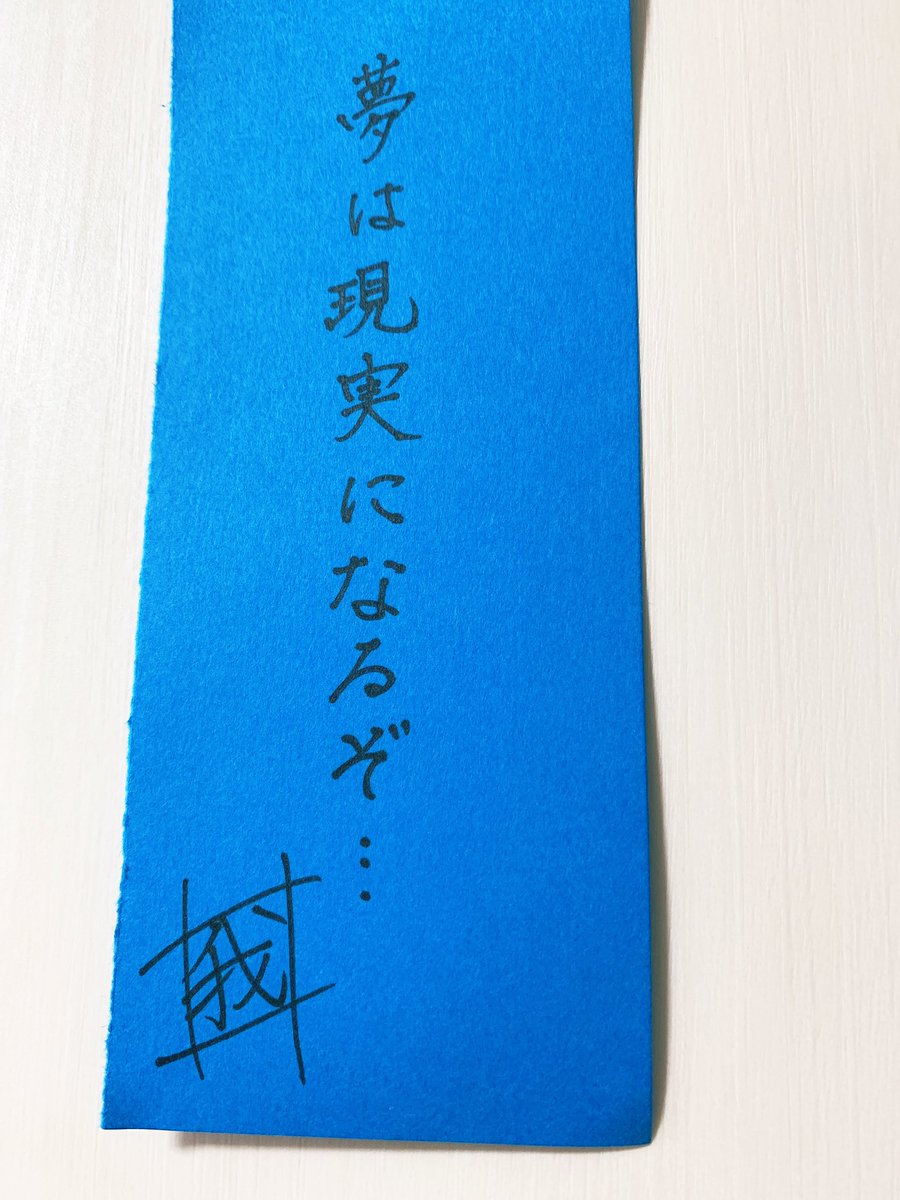 夢は現実になるぞ…